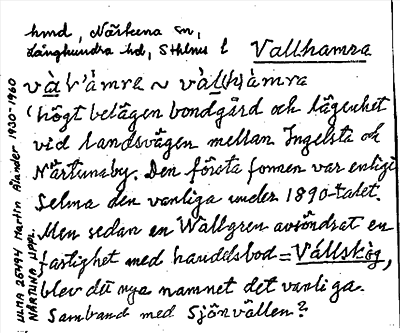 hmd, Närtuna sn,
Långhundra hd, Sthlms l Vallhamra
và̀l'àmra ~ vàl(h)àmra
(högt belägen bondgård och lägenhet
vid landsvägen mellan Ingelsta och
Närtunaby. Den första formen var enligt
Selma den vanliga under 1890-talet.
Men sedan en Wallgren avsöndrat en
fastighet med handelsbod = Vállskòg,
blev det nya namnet det vanliga.
Samband med Sjönvällen?
ULMA 26494 Martin Ålander 1920-1960
NÄRTUNA UPPL.